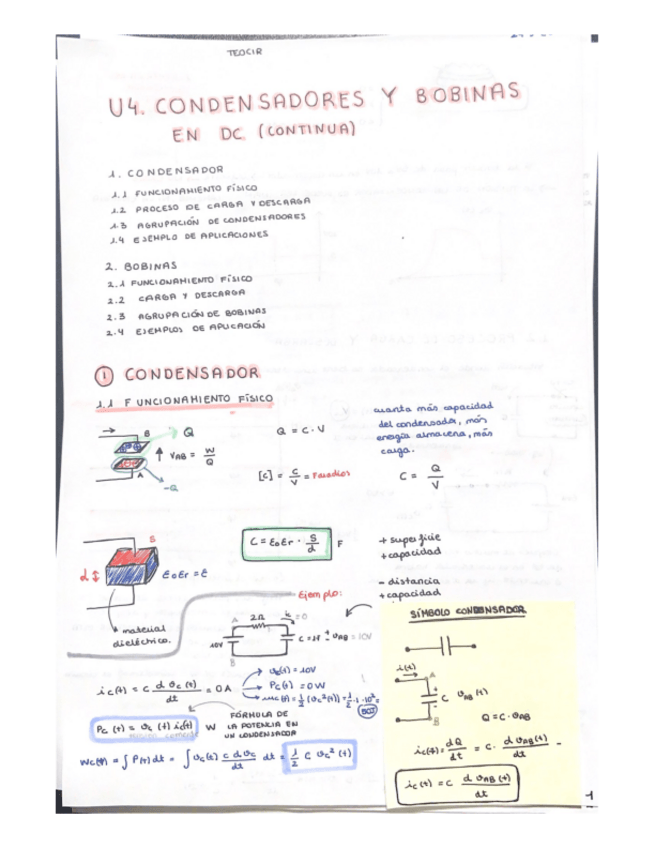 TEOCIR
U4. CONDENSADORES Y BOBINAS
EN DC (CONTINUA)
1. CONDENSADOR
1.1 FUNCIONAMIENTO FÍSICO
1.2 PROCESO DE CARGA Y DESCARGA
1.3 AGRUPACIÓN DE CONDENSADORES
1.4 EJEMPLO DE APLICACIONES
2. BOBINAS
2.1 FUNCIONAMIENTO FÍSICO
2.2 CARGA Y DESCARGA
2.3 AGRUPACIÓN DE BOBINAS
2.4 EJEMPLOS DE APLICACIÓN
1 CONDENSADOR
1.1 FUNCIONAMIENTO FÍSICO
B Q
VAB = W/Q
A
-Q
Q = C·V
[C] = C/V = Faradios
cuanta más capacidad
del condensador, más
energía almacena, más
carga.
C = Q/V
S
d
εoεr = ε
material
dieléctrico.
C = εoεr · S/d F
+ superficie
+ capacidad
- distancia
+ capacidad
Ejemplo:
A 2Ω ic = 0
10V C = 1F + VAB = 10V
B
ic(t) = C d vc(t)/dt = 0 A
vc(t) = 10V
Pc(t) = 0W
wc(t) = 1/2 (vc²(t)) = 1/2 · 1 · 10² =
50J
Pc(t) = vc(t) ic(t) W
FÓRMULA DE
LA POTENCIA EN
UN CONDENSADOR
Wc(t) = ∫ P(t) dt = ∫ vc(t) C d vc/dt dt = 1/2 C vc²(t)
SÍMBOLO CONDENSADOR
i(t) A
C vAB(t)
B
Q = C · vAB
ic(t) = dQ/dt = C · d vAB(t)/dt =
ic(t) = C d vAB(t)/dt
1